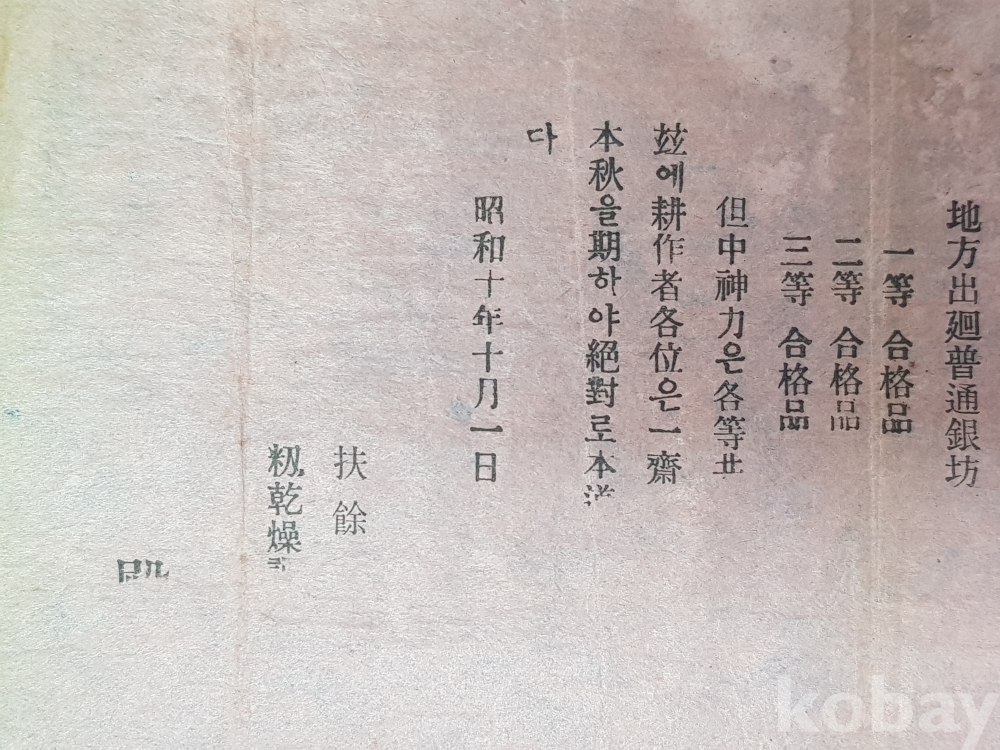 地方出廻普通銀坊
一等 合格品
二等 合格品
三等 合格品
但中神力은各等
玆에耕作者各位은一齊
本秋을期하야絕對로本
다
昭和十年十月一日
扶餘
籾乾燥
kobay